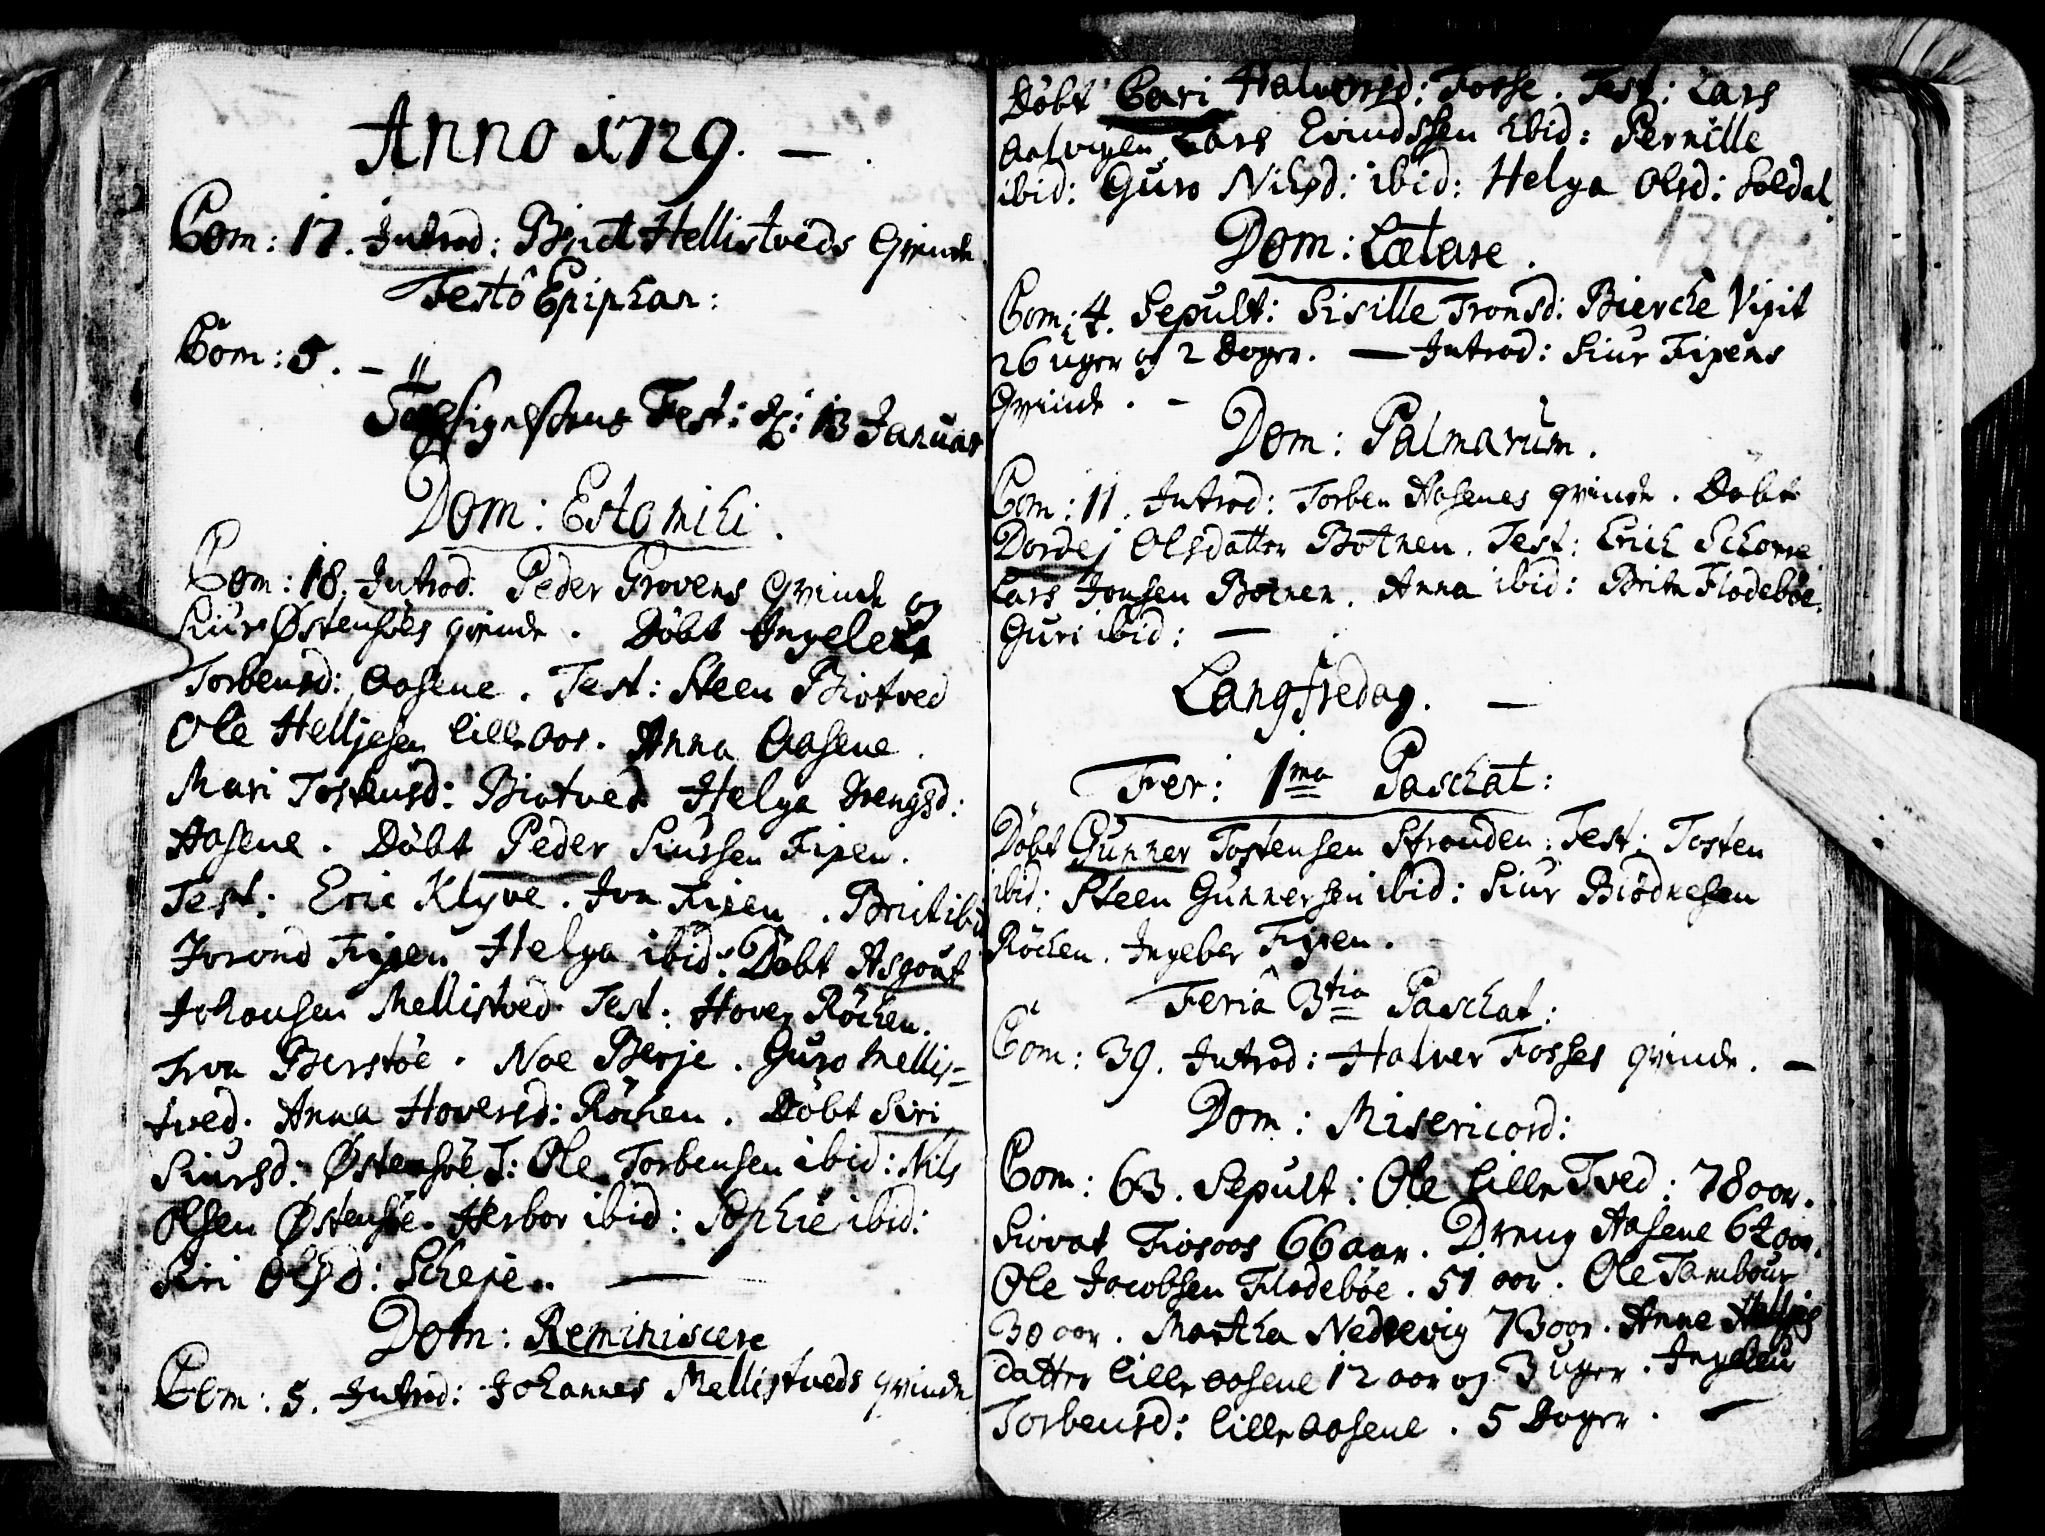 Anno 1729. —
Com: 17. Introd: Birit Hellistveds Qvinde
Festo Epiphan:
Com: 5. –
Fest: d: 13 Januar
Dom: Estomihi.
Com: 18. Introd: Peder Grovens Qvinde og
Siur Østensøes qvinde. Döbt Ingeleff
Torbensd: Aasene. Test: Steen Biotved
Ole Helljesen lille Aas. Anna Aasene.
Mari Tostensd: Biotved Helga Drengsd:
Aasene. Döbt Peder Siursen Fixen.
Test: Eric Klyve. Jon Fixen. Brit ibid
Jorond Fixen Helga ibid: Döbt Asgout
Johansen Mellistved. Test: Hover Röchen.
Iron Berstöe. Noe Berje. Guro Mellis=
tved. Anna Hoversd: Röchen. Döbt Siri
Siursd: Østensöe T: Ole Torbensen ibid: Nils
Olsen Østensöe. Herbor ibid: Sophie ibid:
Siri Olsd: Scheje. —
Dom: Reminiscere
Com: 5. Introd: Johannes Mellistveds qvinde
Döbt Cari Halvorsd: Fosse. Test: Lars
Aalvigen Lars Eivindssen ibid: Pernille
ibid: Guro Nilsd: ibid: Helga Olsd: Soldal.
139
Dom: Lætare.
Com: 4. Sepult: Sisille Tronsd: Bierche Vixit
26 uger og 2 Dager. — Introd: Siur Fixens
Qvinde. –
Dom: Palmarum.
Com: 11. Introd: Torben Aasenes qvinde. Döbt
Dordej Olsdatter Botnen. Test: Erich Schorre
Lars Jonsen Botnen. Anna ibid: Brita Flodebøe.
Guri ibid: —
Langfredag. —
Fer: 1ma Paschat:
Döbt Gunner Tostensen Stranden: Test: Tosten
ibid: Steen Gunnersen ibid: Siur Biödnesen
Röchen. Ingebor Fixen.
Feriâ 3tia Paschat:
Com: 39. Introd: Halver Fosses qvinde. —
Dom: Misericord:
Com: 63. Sepult: Ole lille Tved: 78 aar.
Siovat Fiosaas 66 aar. Dreng Aasene 64 aar.
Ole Jacobsen Flodebøe. 51 aar. Ole Tambour
30 aar. Martha Nedrevig 73 aar. Anne Helljes
datter lille Aasene 12 aar og 3 uger. Ingeleu
Torbensd: lille Aasene. 5 Dager. —